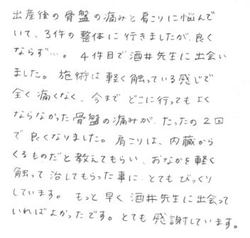 出産後の骨盤の痛みと肩こりに悩んで
いて、3件の整体に行きましたが、良く
ならず…。 4件目で酒井先生に出会い
ました。 施術は軽く触っている感じで
全く痛くなく、今まで どこに行っても よく
ならなかった骨盤の痛みが、たったの2回
で良くなりました。肩こりは、内臓から
くるものだと教えてもらい、おなかを軽く
触って 治してもらった事に とても びっくり
しています。 もっと 早く 酒井先生に出会って
いればよかったです。とても 感謝しています。